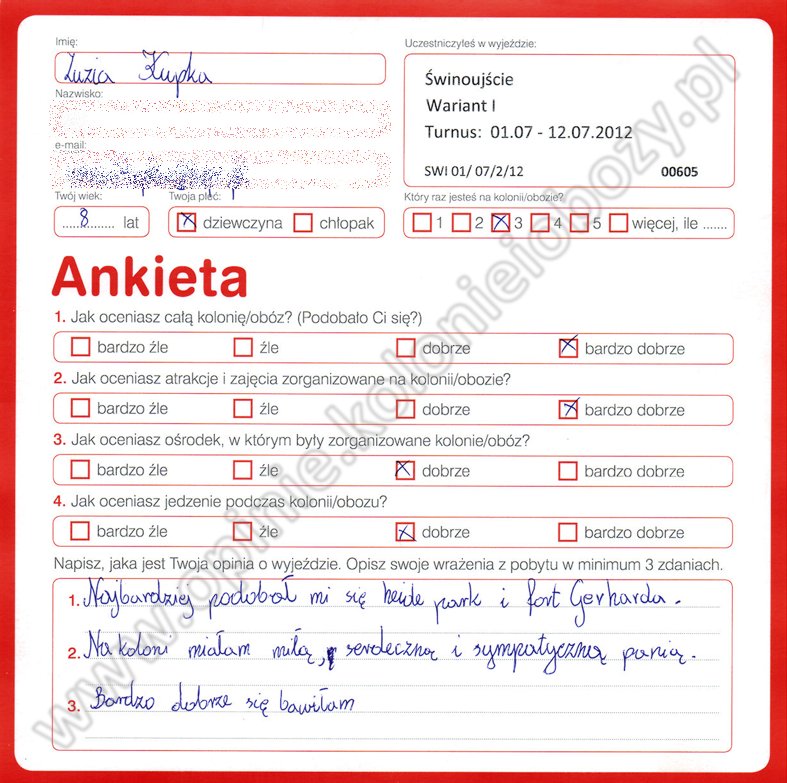 Imię:
Zuzia Kupka
Nazwisko:
e-mail:
Twój wiek:
8 lat
Twoja płeć:
dziewczyna chłopak
Uczestniczyłeś w wyjeździe:
Świnoujście
Wariant I
Turnus: 01.07 - 12.07.2012
SWI 01/ 07/2/12 00605
Który raz jesteś na kolonii/obozie?
1 2 3 4 5 więcej, ile .......
Ankieta
1. Jak oceniasz całą kolonię/obóz? (Podobało Ci się?)
bardzo źle źle dobrze bardzo dobrze
2. Jak oceniasz atrakcje i zajęcia zorganizowane na kolonii/obozie?
bardzo źle źle dobrze bardzo dobrze
3. Jak oceniasz ośrodek, w którym były zorganizowane kolonie/obóz?
bardzo źle źle dobrze bardzo dobrze
4. Jak oceniasz jedzenie podczas kolonii/obozu?
bardzo źle źle dobrze bardzo dobrze
Napisz, jaka jest Twoja opinia o wyjeździe. Opisz swoje wrażenia z pobytu w minimum 3 zdaniach.
1. Najbardziej podobał mi się heide park i fort Gerharda.
2. Na koloni miałam miłą, serdeczną i sympatyczną panią.
3. Bardzo dobrze się bawiłam
www.opinie.kolonieiobozy.pl